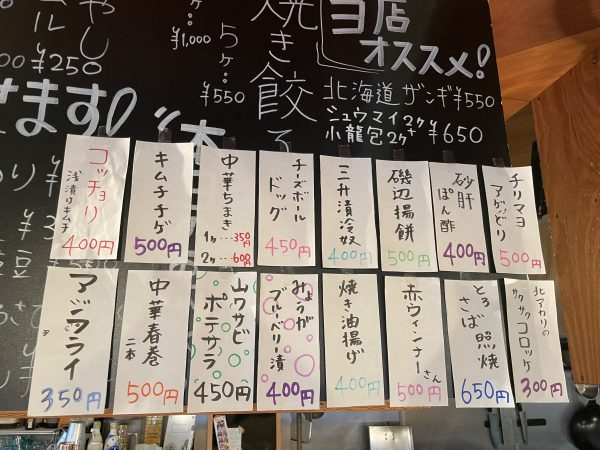 当店
オススメ!
北海道ザンギ¥550
シュウマイ2ケ
小龍包2ケ ¥650
焼き餃子
5ヶ…
¥550
¥1,000
¥250
コッチョリ
浅漬けキムチ
400円
キムチチゲ
500円
中華ちまき
1ヶ…350円
2ヶ…600円
チーズボール
ドッグ
450円
三升漬冷奴
400円
磯辺揚餅
500円
砂肝
ぽん酢
400円
チリマヨ
500円
アジフライ
350円
中華春巻
二本
500円
山ワサビ
ポテサラ
450円
みょうが
ブルーベリー漬
400円
焼き油揚げ
400円
赤ウィンナーさん
500円
とろ
さば照焼
650円
北アカリの
サクサクコロッケ
300円